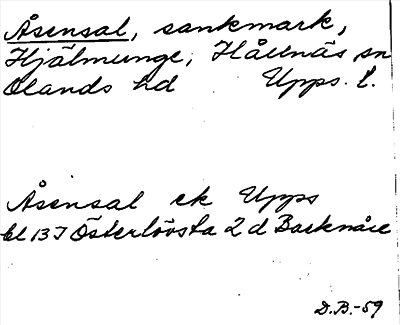 Åsensal, sankmark,
Hjälmunge, Hållnäs sn
Olands hd Upps. l.
Åsensal ek Upps
bl 13 I Österlövsta 2 d Backnåre
D.B.-59